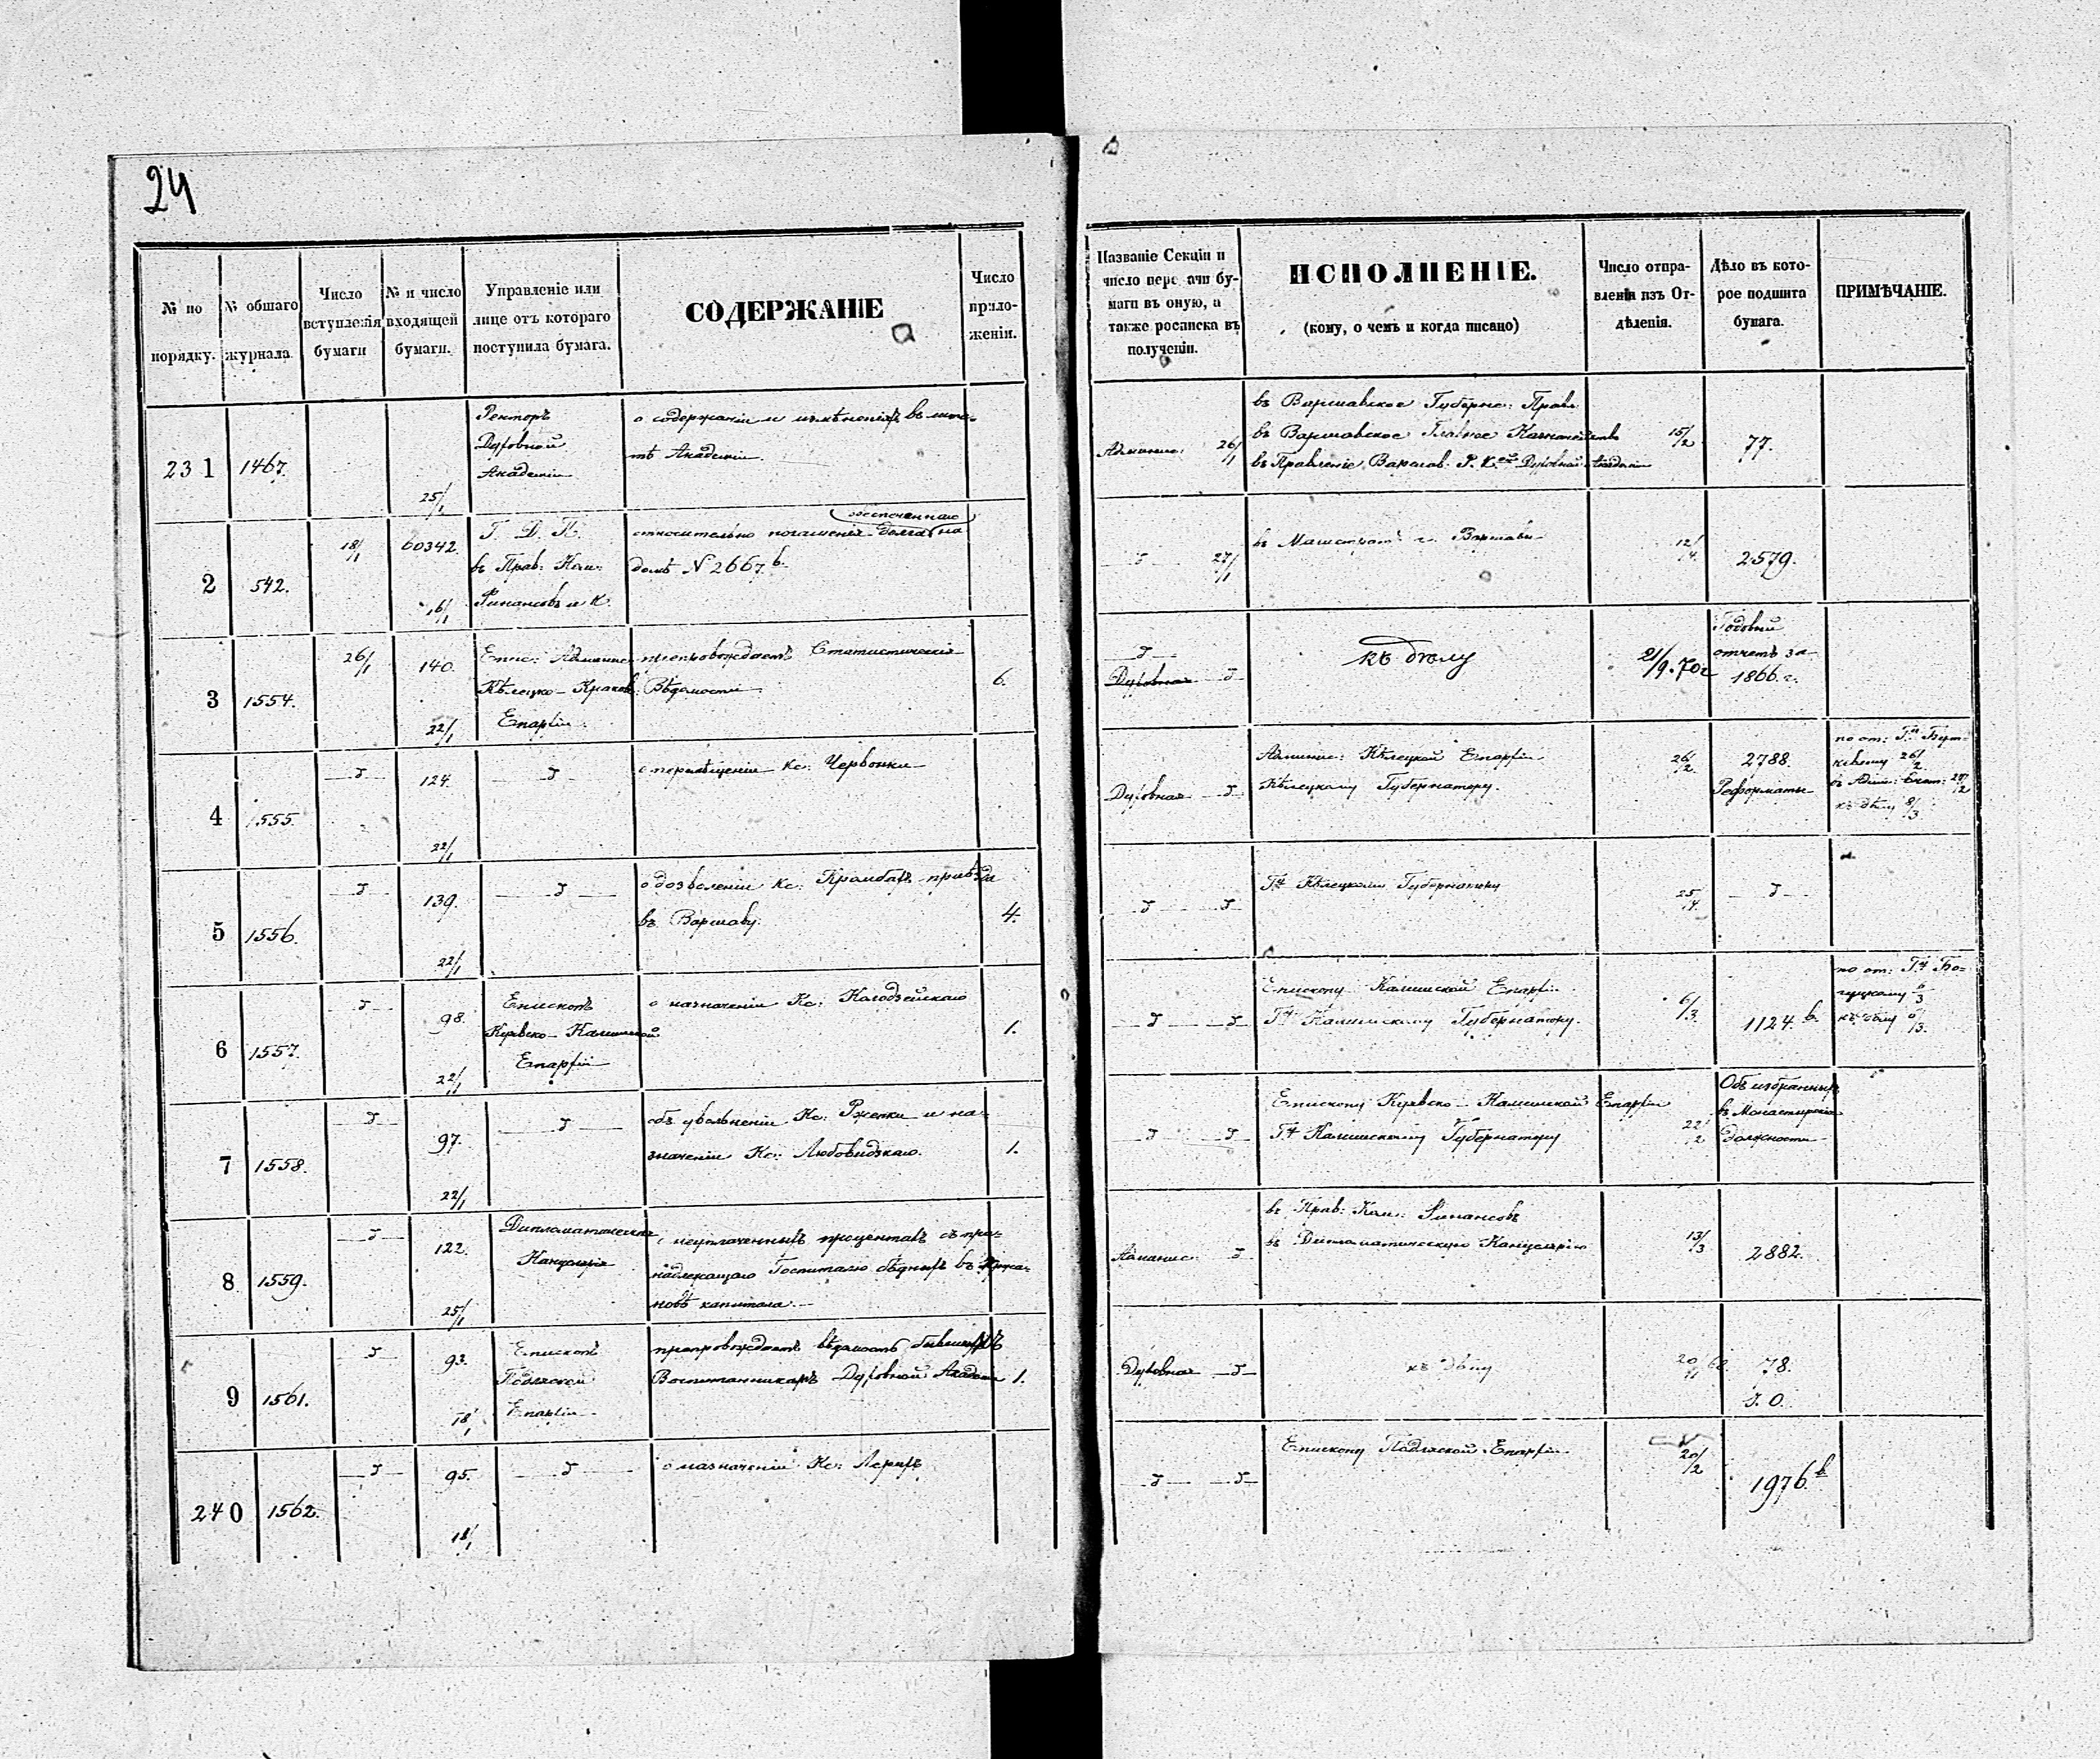 24
№ по порядку.
№ общаго журнала
Число вступленія бумаги
№ и число входящей бумаги.
Управленіе или лице отъ котораго поступила бумага.
СОДЕРЖАНІЕ
Число приложеній.
Названіе Секціи и число передачи бумаги въ оную, а также росписка въ полученіи.
ИСПОЛНЕНІЕ.
(кому, о чемъ и когда писано)
Число отправленія изъ Отдѣленія.
Дѣло въ которое подшита бумага.
ПРИМѢЧАНІЕ.
231
1467.
25/1
Ректоръ
Духовной
Академіи
о содержаніи и измѣненіяхъ въ шта-
тѣ Академіи.
26/1
въ Варшавское Губерн: Правл:
въ Варшавское Главное Казначейство
въ Правленіе Варшав: Р. К. Духовной Академіи
15/2
77.
2
542.
18/1
60342.
16/1
Г. Д. К.
въ Прав: Ком:
Финансовъ и К.
относительно погашенія долга на
обеспеченнаго
домѣ N 2667 b.
27/1
въ Магистратъ г. Варшавы
12/4
2579.
3
1554.
26/1
140.
22/1
Епис: Админис:
Кѣлецко-Краков:
Епархіи
препровождаетъ Статистическія
Вѣдомости
6.
Духовная
къ дѣлу
21/9.70г
Годовый
отчетъ за
1866 г.
4
1555.
124.
22/1
о перемѣщеніи Кс: Червонки
Духовная
Админис: Кѣлецкой Епархіи
Кѣлецкому Губернатору.
26/2
2788.
Реформаты
къ дѣлу 8/3
5
1556.
139.
22/1
о дозволеніи Кс: пріѣзда
въ Варшаву.
4.
Гу Кѣлецкому Губернатору
25/4
6
1557.
98.
22/1
Епископъ
Куявско-Калишской
Епархіи
о назначеніи Кс: Колодзейскаго
1.
Епископу Калишской Епархіи
Гу Калишскому Губернатору.
6/3
1124. b.
7
1558.
97.
22/1
объ увольненіи Кс: Ржепки и на-
значеніи Кс: Любовидзкаго.
1.
Епископу Куявско-Калишской Епархіи
Гу Калишскому Губернатору
22/2
Объ избранныхъ
въ Монастырскія
должности
8
1559.
122.
25/1
Дипломатическая
Канцелярія
неуплаченныхъ процентахъ съ при-
надлежащаго Госпиталю бѣдныхъ въ
капитала.
Админис:
въ Прав: Ком: Финансовъ
въ Дипломатическую Канцелярію
13/3
2882.
9
1561.
93.
18/1
Епископъ
Подляской
Епархіи
препровождаетъ вѣдомость бывшихъ
Воспитанникахъ Духовной Академіи
1.
Духовная
къ дѣлу
78.
240
1562.
95.
18/1
о назначеніи Кс:
Епископу Подляской Епархіи
20/2
1976. b